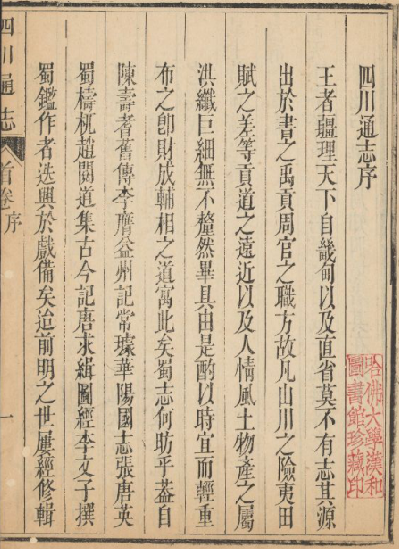 四川通志序
王者疆理天下自畿甸以及直省莫不有志其源
出於書之禹貢周官之職方故凡山川之險夷田
賦之差等貢道之遠近以及人情風土物產之屬
洪纖巨細無不釐然畢具由是酌以時宜而輕重
布之卽財成輔相之道寓此矣蜀志何昉乎葢自
陳壽耆舊傳李膺益州記常璩華陽國志張唐英
蜀檮杌趙閱道集古今記唐求緝圖經李文子撰
蜀鑑作者迭興於戲備矣迨前明之世屢經修輯
四川通志
首卷
序
一
哈佛大學漢和
圖書館珍藏印